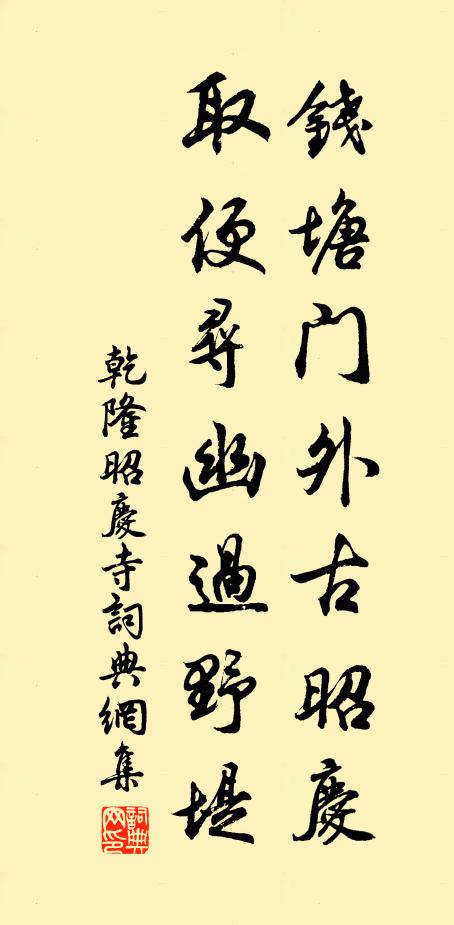 錢塘门外古昭慶
取便尋幽過野堤
乾隆昭慶寺詞典網集
詞典网印